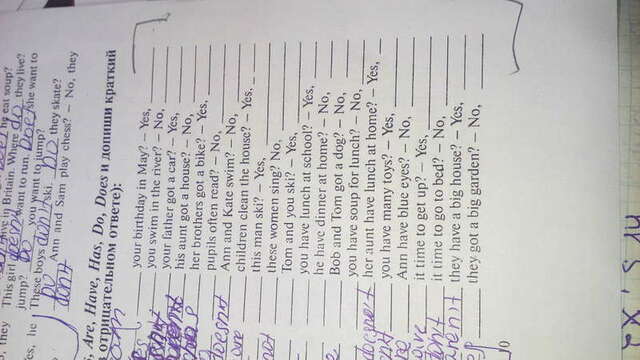 he eat soup?
0, they This girl doesn't live in Britain. Where do they live?
jump? Do you want to run. Does she want to
you want to jump?
Yes, he These boys don't ski. Do they skate?
Do Ann and Sam play chess? – No, they
don't
s, Are, Have, Has, Do, Does и допиши краткий
отрицательном ответе):
am
your birthday in May? – Yes,
you swim in the river? – No,
your father got a car? – Yes,
his aunt got a house? – No,
has her brothers got a bike? – Yes,
pupils often read? – No,
doesn't Ann and Kate swim? – No,
are children clean the house? – Yes,
this man ski? – Yes,
not these women sing? No,
Tom and you ski? – Yes,
you have lunch at school? – Yes,
he have dinner at home? – No,
Bob and Tom got a dog? – No,
you have soup for lunch? – No,
doesn't her aunt have lunch at home? – Yes,
you have many toys? – Yes,
Ann have blue eyes? – No,
it time to get up? – Yes,
don't it time to go to bed? – No,
aren't they have a big house? – Yes,
they got a big garden? – No,